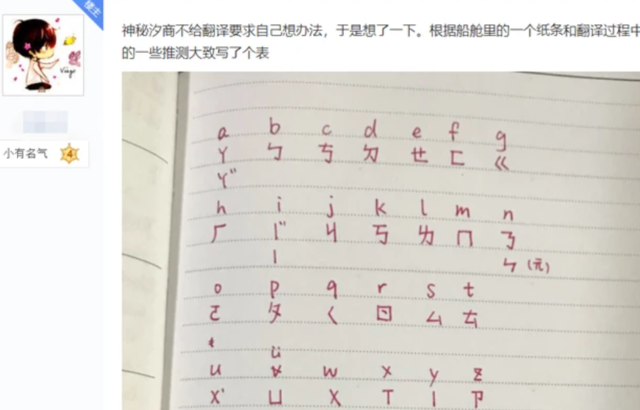 楼主
神秘汐商不给翻译要求自己想办法，于是想了一下。根据船舱里的一个纸条和翻译过程中
的一些推测大致写了个表
小有名气 4
a b c d e f g
ㄚ ㄅ ㄘ ㄉ ㄝ ㄈ ㄍ
ㄚ"
h i j k l m n
ㄏ 丨" ㄐ ㄎ ㄌ ㄇ ㄋ
丨 ㄣ (元)
o p q r s t
ㄛ ㄆ ㄑ ㄖ ㄙ ㄊ
ü
u w x y z
ㄨ' ㄩ ㄨ ㄒ 丨 ㄗ